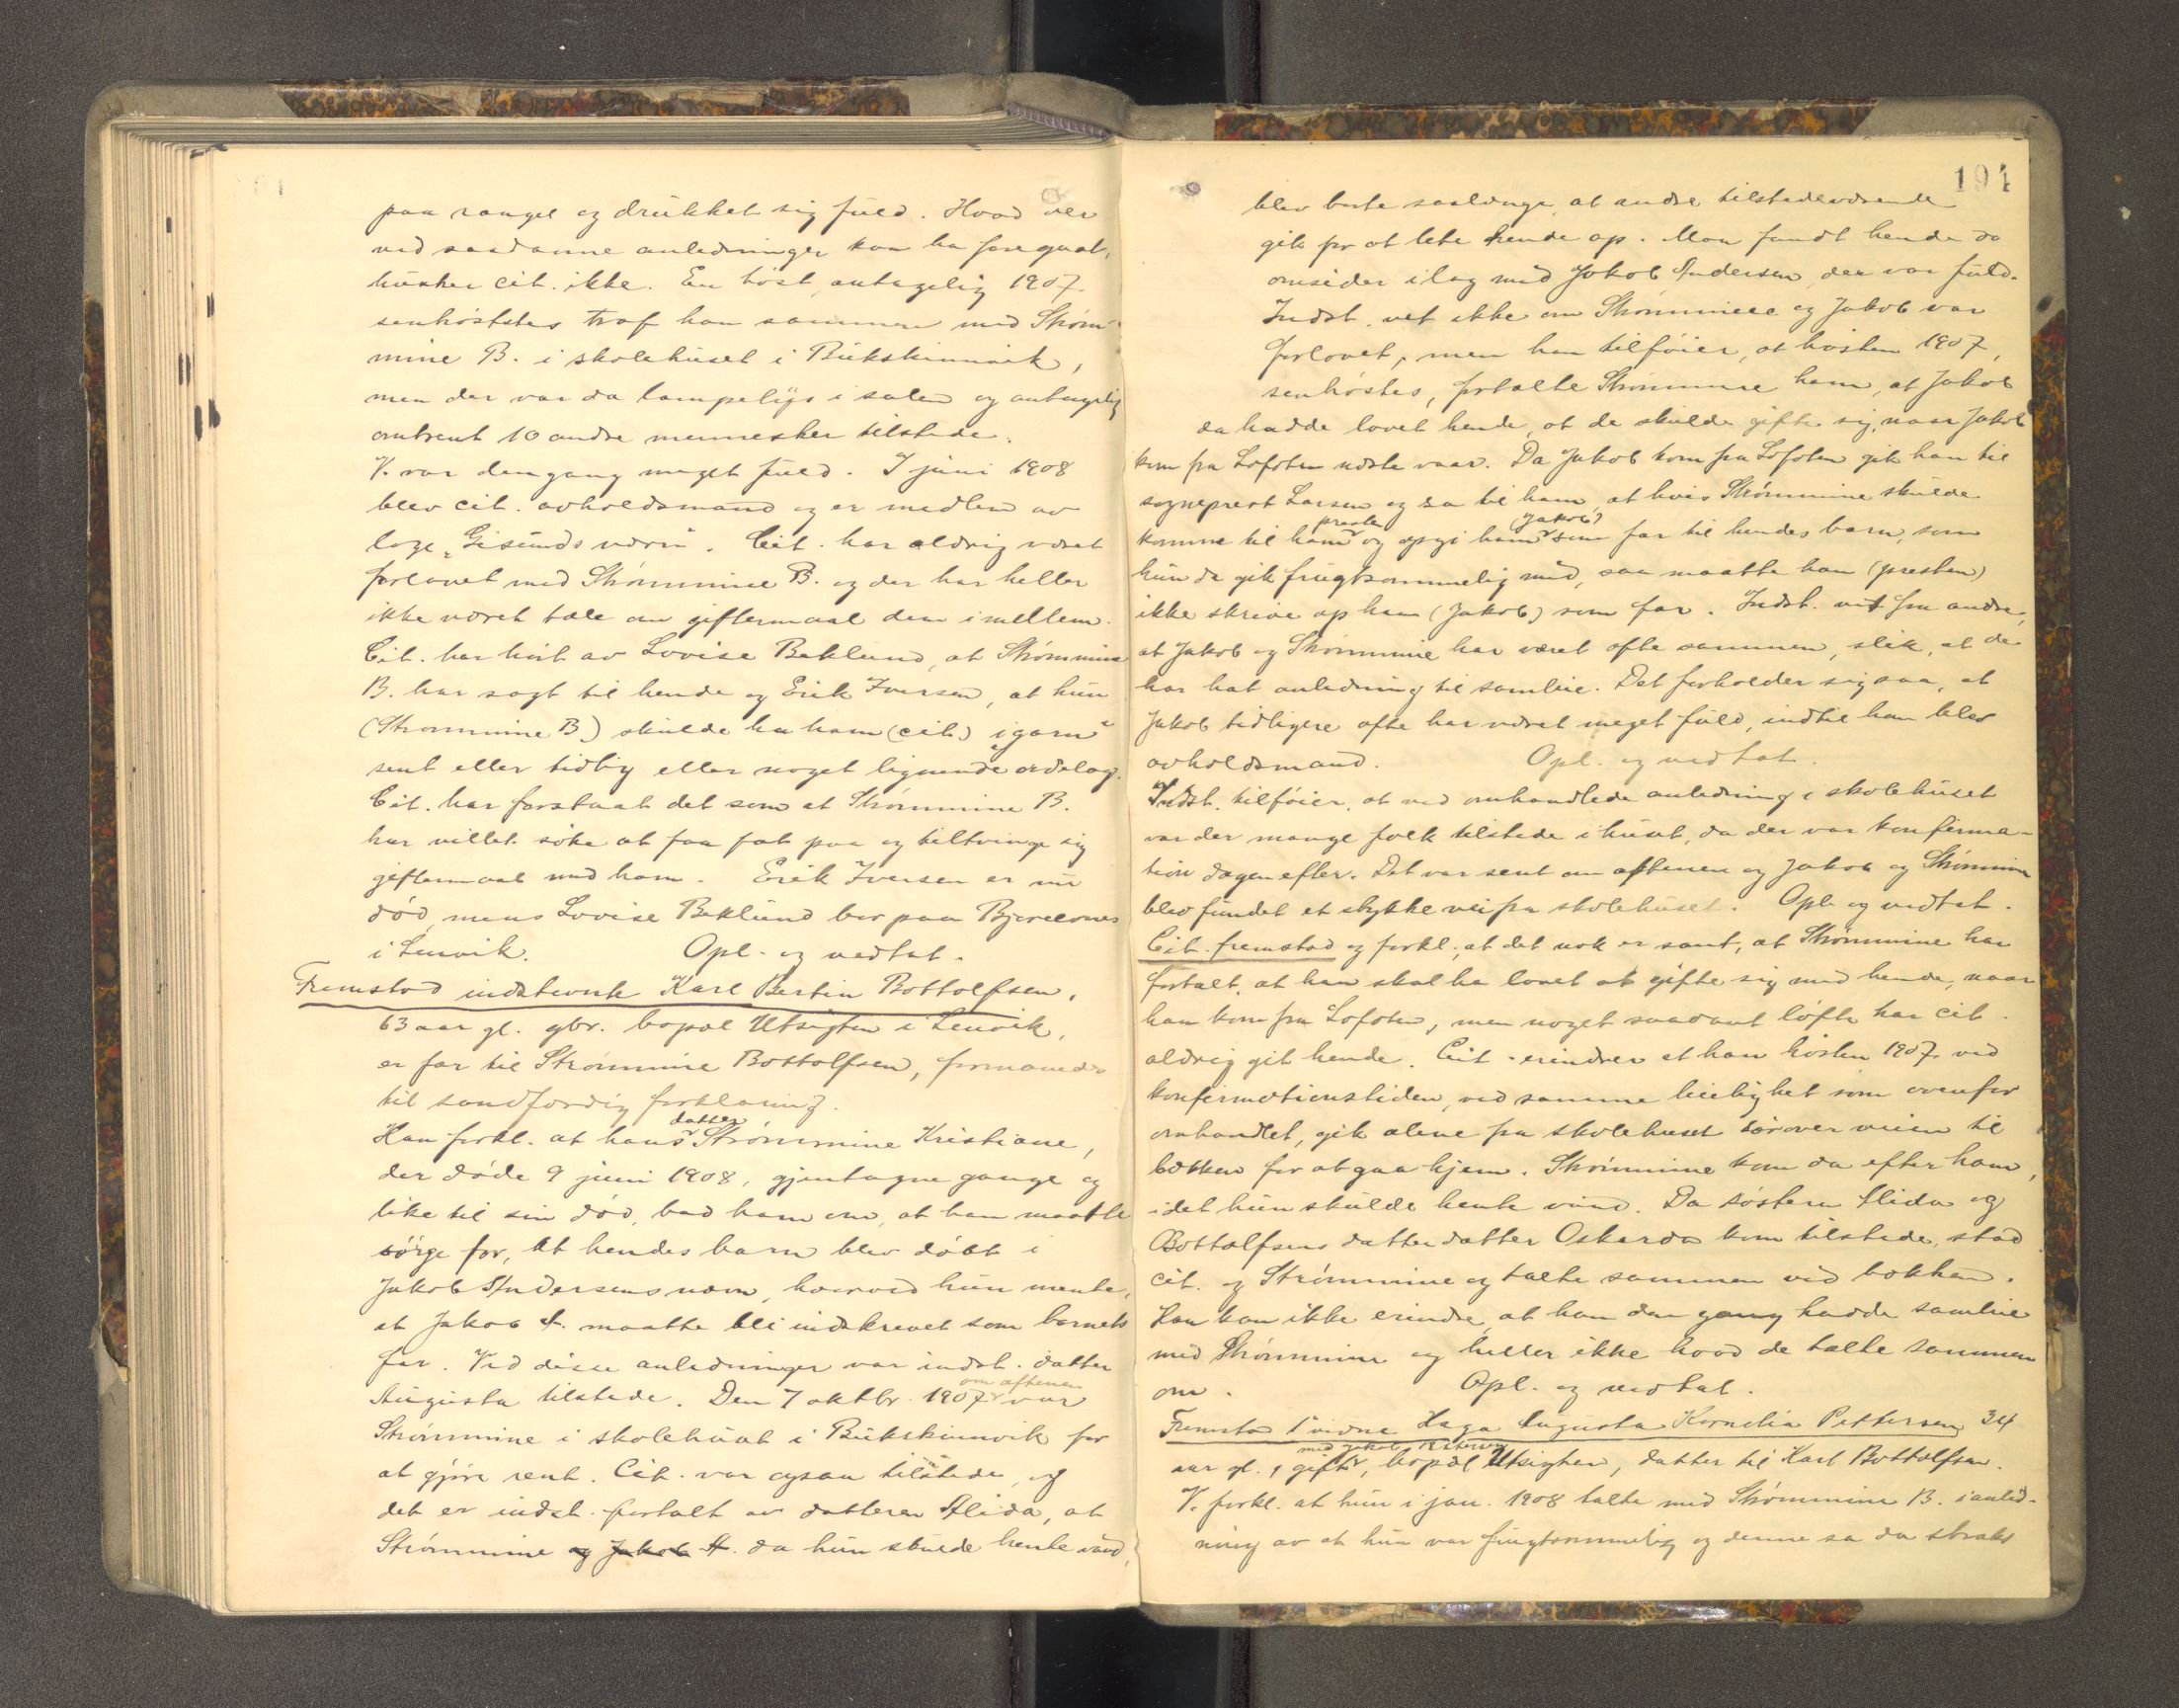 paa rangel og drukket sig fuld. Hvad der
ved saadanne anledninger kan ha foregaat,
husker cit. ikke. En høst, antagelig 1907
senhøstes traf han sammen med Strøm-
mine B. i skolehuset i Bukskinnvik,
men der var da lampelys i salen og antagelig
omtrent 10 andre mennesker tilstede.
V. var dengang meget fuld. I juni 1908
blev cit. avholdsmand og er medlem av
loge „Gisunds værn“. Cit. har aldrig været
forlovet med Strømmine B. og der har heller
ikke været tale om giftermaal dem imellem.
Cit. har hørt av Lovise Beklund, at Strømmine
B. har sagt til hende og Erik Iversen, at hun
(Strømmine B.) skulde ha ham (cit.) „i garn“
sent eller tidlig eller noget lignende ordelag.
Cit. har forstaat det som at Strømmine B.
har villet søke at faa fat paa og tiltvinge sig
giftermaal med ham. Erik Iversen er nu
død, mens Lovise Beklund bor paa Bjorelvnes
i Lenvik. Opl. og vedtat.
Fremstod indstevnte Karl Bertin Bottolfsen,
63 aar gl. gbr. bopæl Utsigten i Lenvik,
er far til Strømmine Bottolfsen, formanedes
til sandfærdig forklaring.
datter
Han forkl. at hans Strømmine Kristiane,
der døde 9 juni 1908, gjentagne gange og
like til sin død, bad ham om, at han maatte
sørge for, at hendes barn blev døbt i
Jakob Andersens navn, hvorved hun mente,
at Jakob A. maatte bli indskrevet som barnets
far. Ved disse anledninger var indst. datter
om aftenen
Augusta tilstede. Den 7 oktbr. 1907 var
Strømmine i skolehuset i Bukskinnvik for
at gjøre rent. Cit. var ogsaa tilstede, og
det er indst. fortalt av datteren Alida, at
Strømmine og Jakob A. da hun skulde hente vand,
194
blev borte saalænge, at andre tilstedeværende
gik for at lete hende op. Man fandt hende da
omsider ilag med Jakob Andersen, der var fuld.
Indst. vet ikke om Strømmine og Jakob var
forlovet, men han tilføier, at høsten 1907,
senhøstes, fortalte Strømmine ham, at Jakob
da hadde lovet hende, at de skulde gifte sig, naar Jakob
kom fra Lofoten næste vaar. Da Jakob kom fra Lofoten gik han til
sogneprest Larsen og sa til ham, at hvis Strømmine skulde
presten (Jakob)
komme til ham og opgi ham som far til hendes barn, som
hun da gik frugtsommelig med, saa maatte han (presten)
ikke skrive op ham (Jakob) som far. Indst. vet fra andre,
at Jakob og Strømmine har været ofte sammen, slik, at de
har hat anledning til samleie. Det forholder sig saa, at
Jakob tidligere ofte har været meget fuld, indtil han blev
avholdsmand. Opl. og vedtat.
Indst. tilføier, at ved omhandlede anledning i skolehuset
var der mange folk tilstede i huset, da der var konfirma-
tion dagen efter. Det var sent om aftenen og Jakob og Strømmine
blev fundet et stykke vei fra skolehuset. Opl. og vedtat.
Cit. fremstod og forkl., at det nok er sant, at Strømmine har
fortalt, at han skal ha lovet at gifte sig med hende, naar
han kom fra Lofoten, men noget saadant løfte har cit.
aldrig git hende. Cit. erindrer at han høsten 1907 ved
konfirmationstiden, ved samme leilighet som ovenfor
omhandlet, gik alene fra skolehuset sørover veien til
bækken for at gaa hjem. Strømmine kom da efter ham,
idet hun skulde hente vand. Da søsteren Alida og
Bottolfsens datterdatter Oskarda kom tilstede, stod
cit. og Strømmine og talte sammen ved bækken.
Han kan ikke erindre, at han den gang hadde samleie
med Strømmine og heller ikke hvad de talte sammen
om. Opl. og vedtat.
Fremstod 1 vidne Haga Augusta Kornelia Pettersen, 34
med Jakob Pettersen
aar gl., gift, bopæl Utsigten, datter til Karl Bottolfsen.
V. forkl. at hun i jan. 1908 talte med Strømmine B. i anled-
ning av at hun var frugtsommelig og denne sa da straks